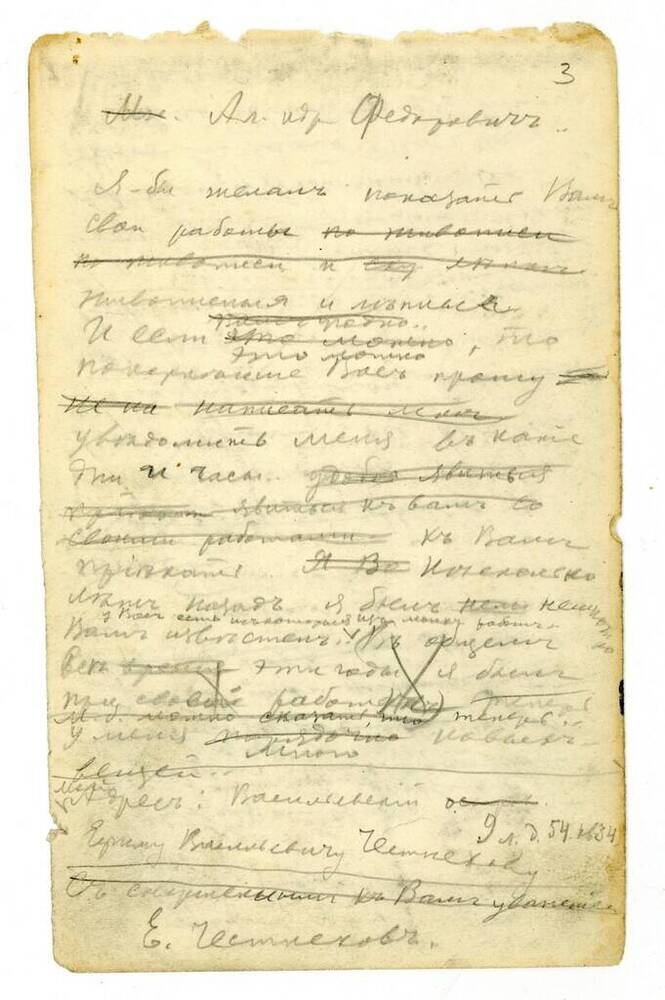 3
Мн. Ал-ндр Федоровичъ.
Я-бы желалъ показать Вамъ
свои работы по живописи
по живописи и
живописныя и лѣпныя
Вамъ угодно..
И если это можно, то
это можно
покорнѣйше Васъ прошу
написать мнѣ
увѣдомить меня въ какіе
дни и часы.. удобно явиться
явиться къ вамъ со
своими работами. къ Вамъ
пріѣхать. Я Во Нѣсколько
лѣтъ назадъ я былъ нем немножко
у Васъ есть нѣкоторыя изъ моихъ работъ.
Вамъ извѣстенъ.. Въ общемъ
Всѣ время эти годы я былъ
при своей работѣ теперь
м. б. можно сказать, что теперь..
у меня порядочно новыхъ
много
вещей..
Мой
Адресъ: Васильевскій о
9 л. д. 54. кв 34
Ефиму Васильевичу Честнякову
Съ совершеннымъ къ Вамъ уваженіемъ
Е. Честняковъ.